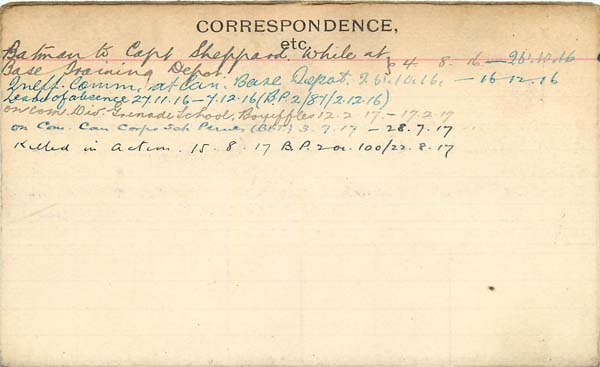 CORRESPONDENCE,
etc.
Batman to Capt Sheppard. While at } 4. 8. 16 — 26.10.16
Base Training Depot.
Ineff. Comm. at Can. Base Depot. 26.10.16. — 16-12-16
Leave of absence 27.11.16 — 7.12.16 (B.P.2/87/2.12.16)
on com. Div. Grenade School, 12.2.17. — 17.2.17
on Com. Can Corps Sch (B.P.) 3.7.17 — 28.7.17
Killed in action. 15. 8. 17 B.P. 2 100/22.8.17